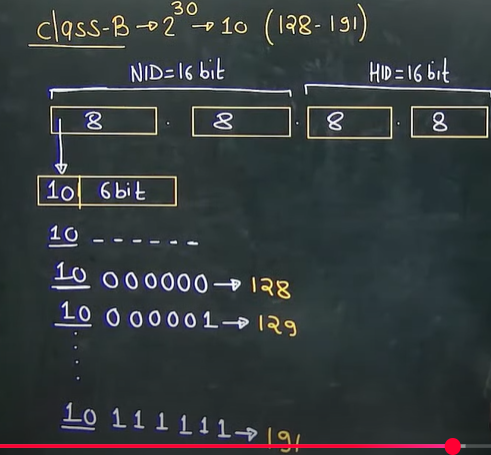 class-B → 2^30 → 10 (128-191)
NID=16 bit HID=16 bit
8 . 8 . 8 . 8
10 6bit
10 ------
10 000000 → 128
10 000001 → 129
10 111111 → 191